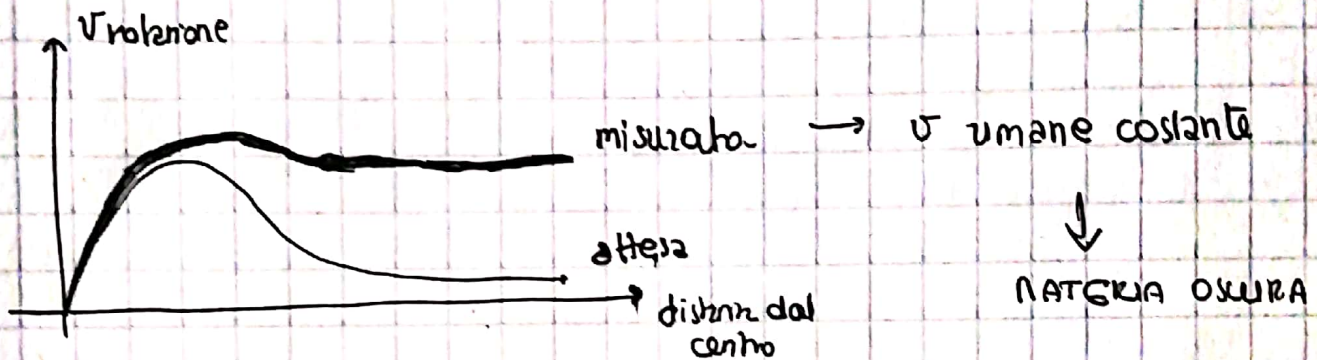 v rotazione
misurata → v rimane costante
↓
attesa
MATERIA OSCURA
distanz dal
centro